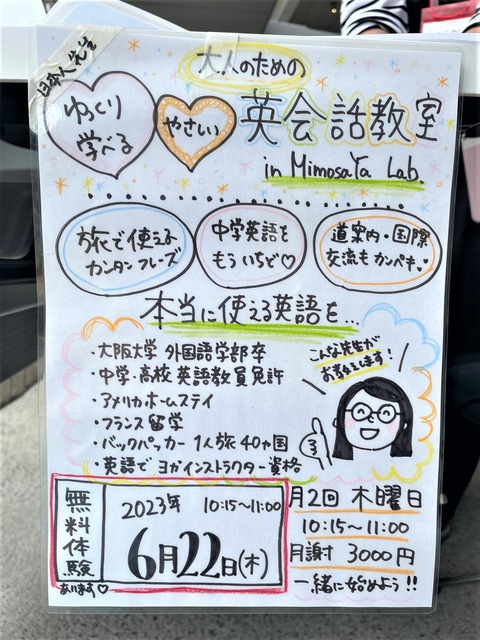 日本人先生
大人のための
ゆっくり
学べる
やさしい
英会話教室
in MimosaYa Lab.
旅で使えるカンタンフレーズ
中学英語をもういちど♡
道案内・国際交流もカンペキ
本当に使える英語を…
・大阪大学 外国語学部卒
・中学・高校 英語教員免許
・アメリカホームステイ
・フランス留学
・バックパッカー 1人旅40ヵ国
・英語でヨガインストラクター資格
こんな先生が
お教えします!
無料体験
あります♡
2023年 10:15~11:00
6月22日(木)
月2回 木曜日
10:15~11:00
月謝 3000円
一緒に始めよう!!